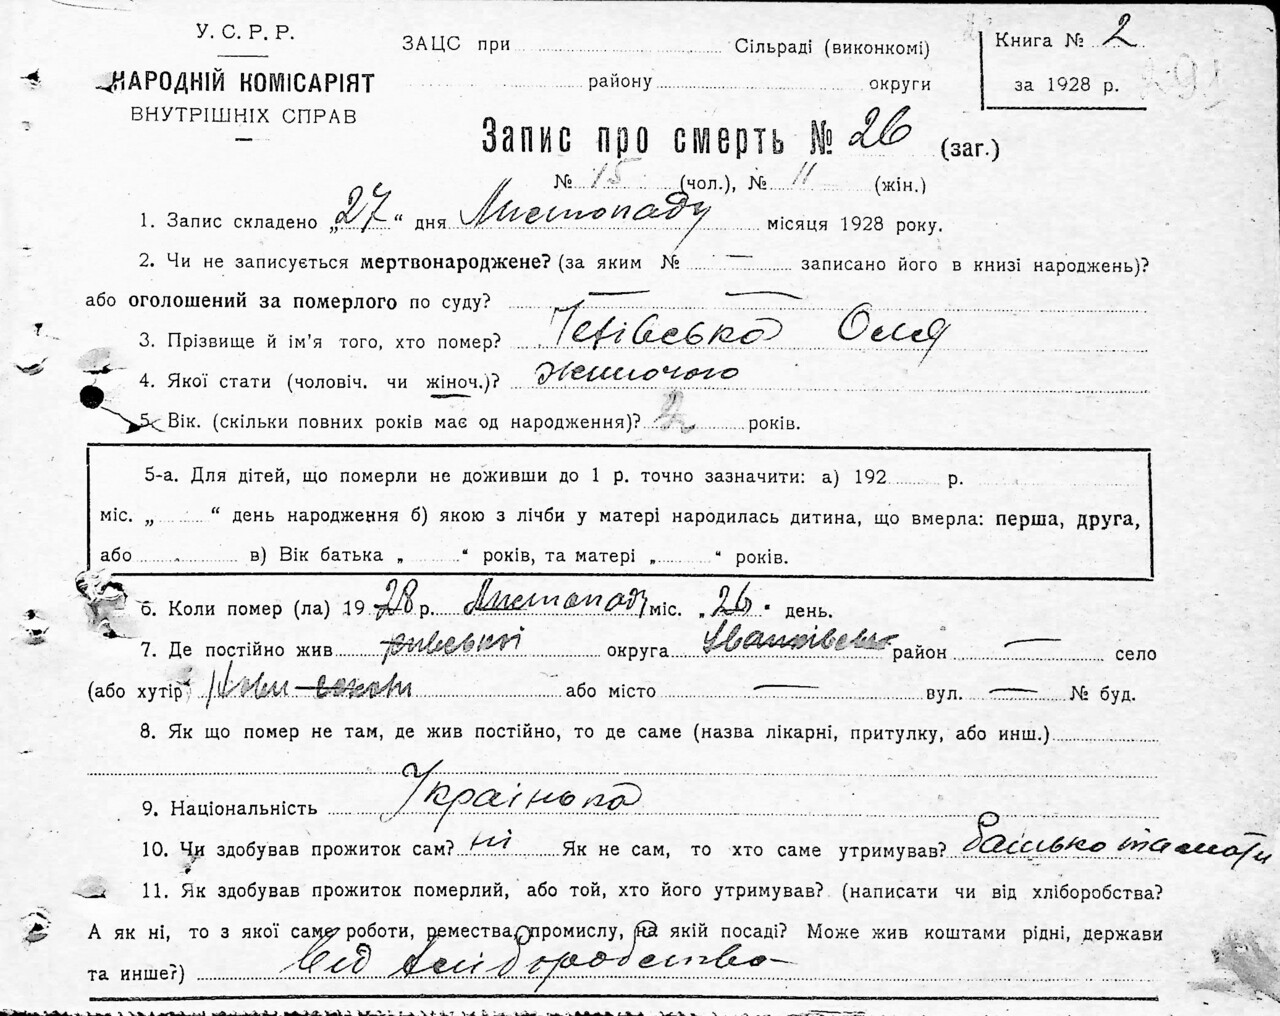 У. С. Р. Р.
НАРОДНІЙ КОМІСАРІЯТ
ВНУТРІШНІХ СПРАВ
ЗАЦС при Сільраді (виконкомі)
району округи
Книга № 2
за 1928 р.
Запис про смерть № 26 (заг.)
№ 15 (чол.), № 11 (жін.)
1. Запис складено „27“ дня Листопаду місяця 1928 року.
2. Чи не записується мертвонароджене? (за яким № — записано його в книзі народжень)?
або оголошений за померлого по суду? — —
3. Прізвище й ім'я того, хто помер? Оля
4. Якої стати (чоловіч. чи жіноч.)? жиночого
5. Вік. (скільки повних років має од народження)? 2 років.
5-а. Для дітей, що померли не доживши до 1 р. точно зазначити: а) 192 р.
міс. „ “ день народження б) якою з лічби у матері народилась дитина, що вмерла: перша, друга,
або в) Вік батька „ “ років, та матері „ “ років.
6. Коли помер (ла) 1928 р. Листопаду міс. „26“ день.
7. Де постійно жив округа район — село
(або хутір) або місто — вул. — № буд.
8. Як що помер не там, де жив постійно, то де саме (назва лікарні, притулку, або инш.)
9. Національність Українька
10. Чи здобував прожиток сам? ні Як не сам, то хто саме утримував? батько та мати
11. Як здобував прожиток померлий, або той, хто його утримував? (написати чи від хліборобства?
А як ні, то з якої саме роботи, ремества, промислу, на якій посаді? Може жив коштами рідні, держави
та инше?) Від хліборобства